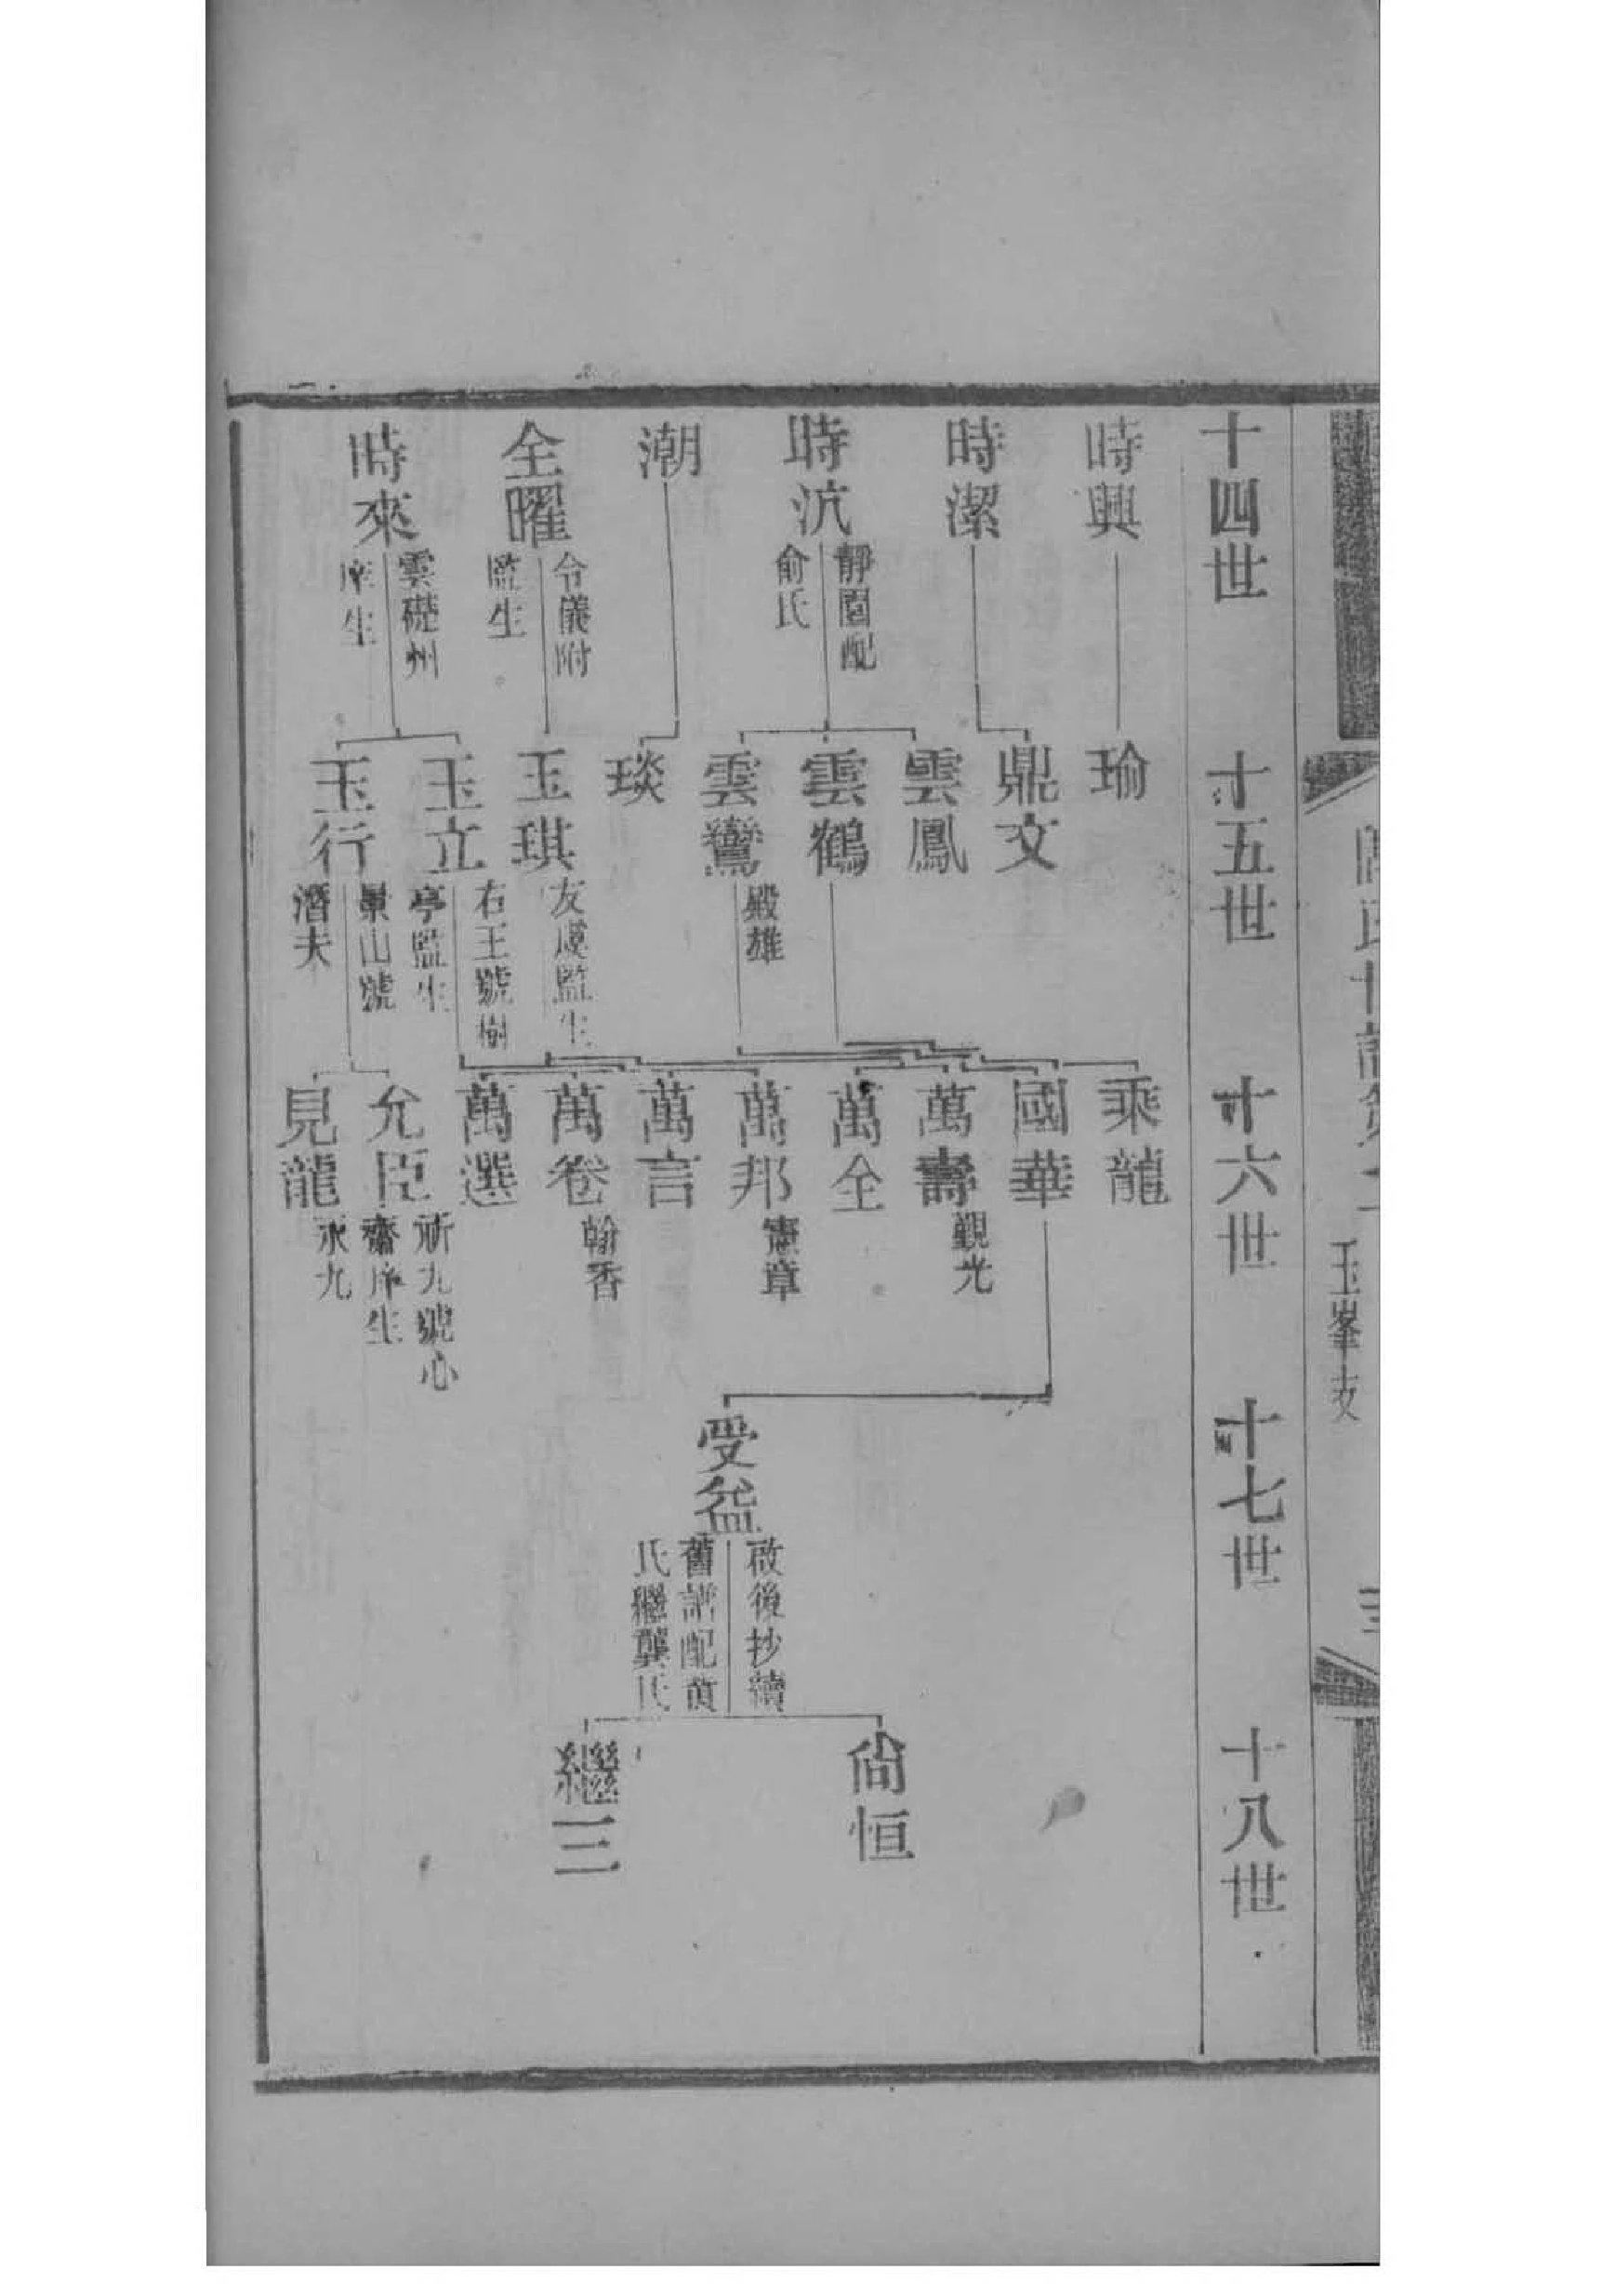 玉峯支
十四世
十五世
十六世
十七世
十八世
時興
時潔
時沆
靜園配
俞氏
潮
全曜
令儀附
監生
時來
雲礎州
庠生
瑜
鼎文
雲鳳
雲鶴
雲鸞
殿雄
琰
玉琪
友虞監生
玉立
右王號樹
亭監生
玉行
景山號
潛夫
乘龍
國華
萬壽
觀光
萬全
萬邦
憲章
萬言
萬卷
翰香
萬選
允臣
祈九號心
齋庠生
見龍
永九
受益
啟後抄續
舊譜配黃
氏繼龔氏
尙恒
繼三